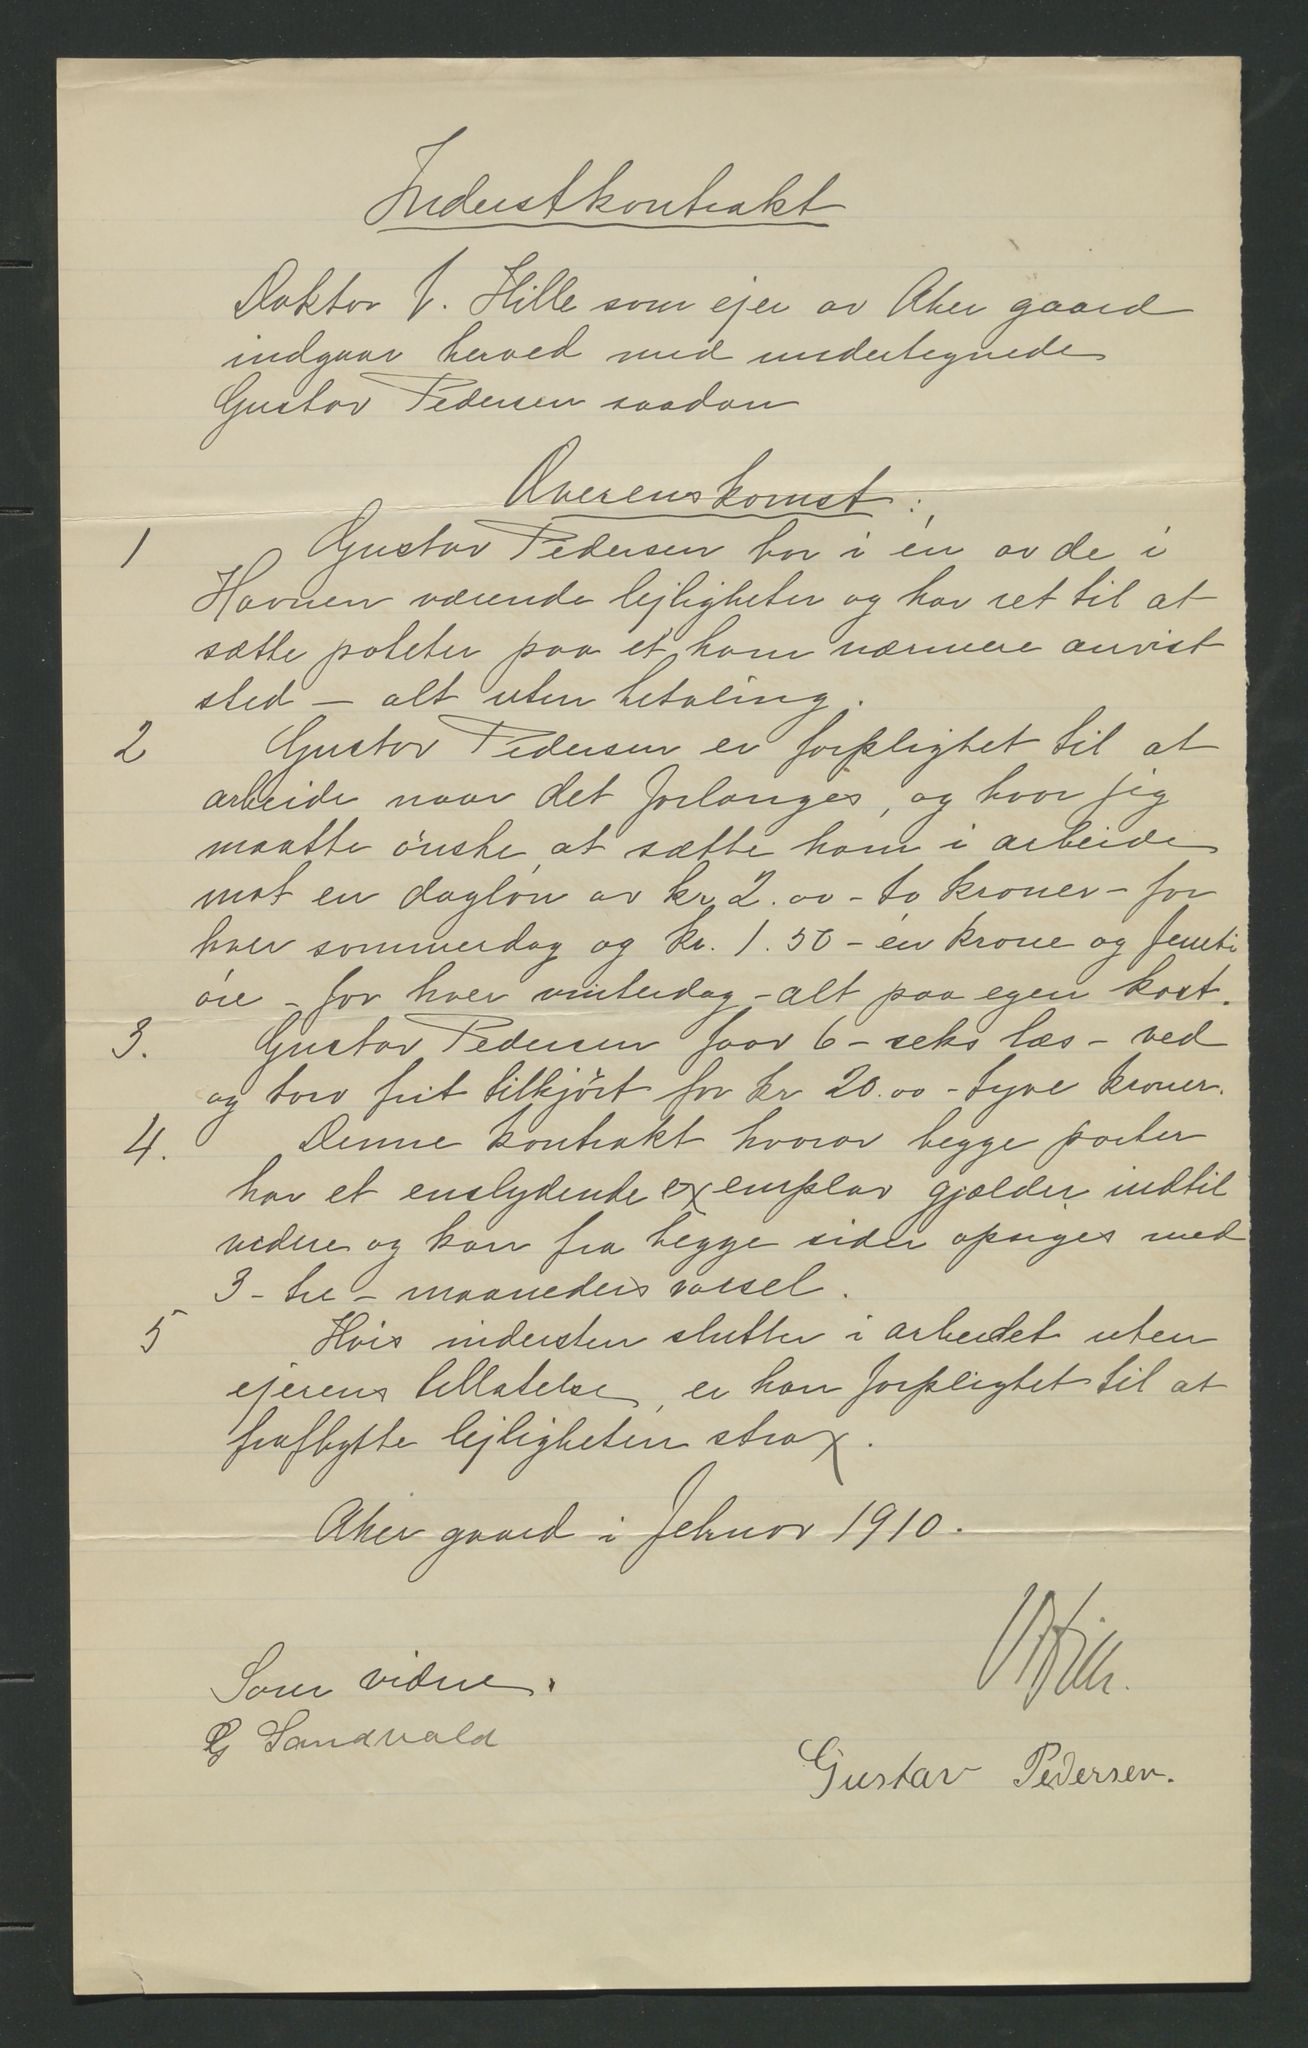 Inderstkontrakt
Doktor V. Hille som ejer av Aker gaard
indgaar herved med undertegnede
Gustav Pedersen saadan
Overenskomst:
1 Gustav Pedersen bor i én av de i
Havnen værende lejligheter og har ret til at
sætte poteter paa et ham nærmere anvist
sted – alt uten betaling.
2 Gustav Pedersen er forpligtet til at
arbeide naar det forlanges, og hvor jeg
maatte önske at sætte ham i arbeide
mot en daglön av kr 2.00 – to kroner – for
hver sommerdag og kr. 1.50 – en krone og femti
öre – for hver vinterdag – alt paa egen kost.
3. Gustav Pedersen faar 6 – seks læs – ved
og torv frit tilkjört for kr 20.00 – tyve kroner.
4. Denne kontrakt hvorav begge parter
har et enslydende exemplar gjælder indtil
videre og kan fra begge sider opsiges med
3 – tre – maaneders varsel.
5 Hvis indersten slutter i arbeidet uten
ejerens tillatelse, er han forpligtet til at
fraflytte lejligheten strax.
Aker gaard i Februar 1910.
V Hille.
Som vidne.
G Sandvald
Gustav Pedersen.